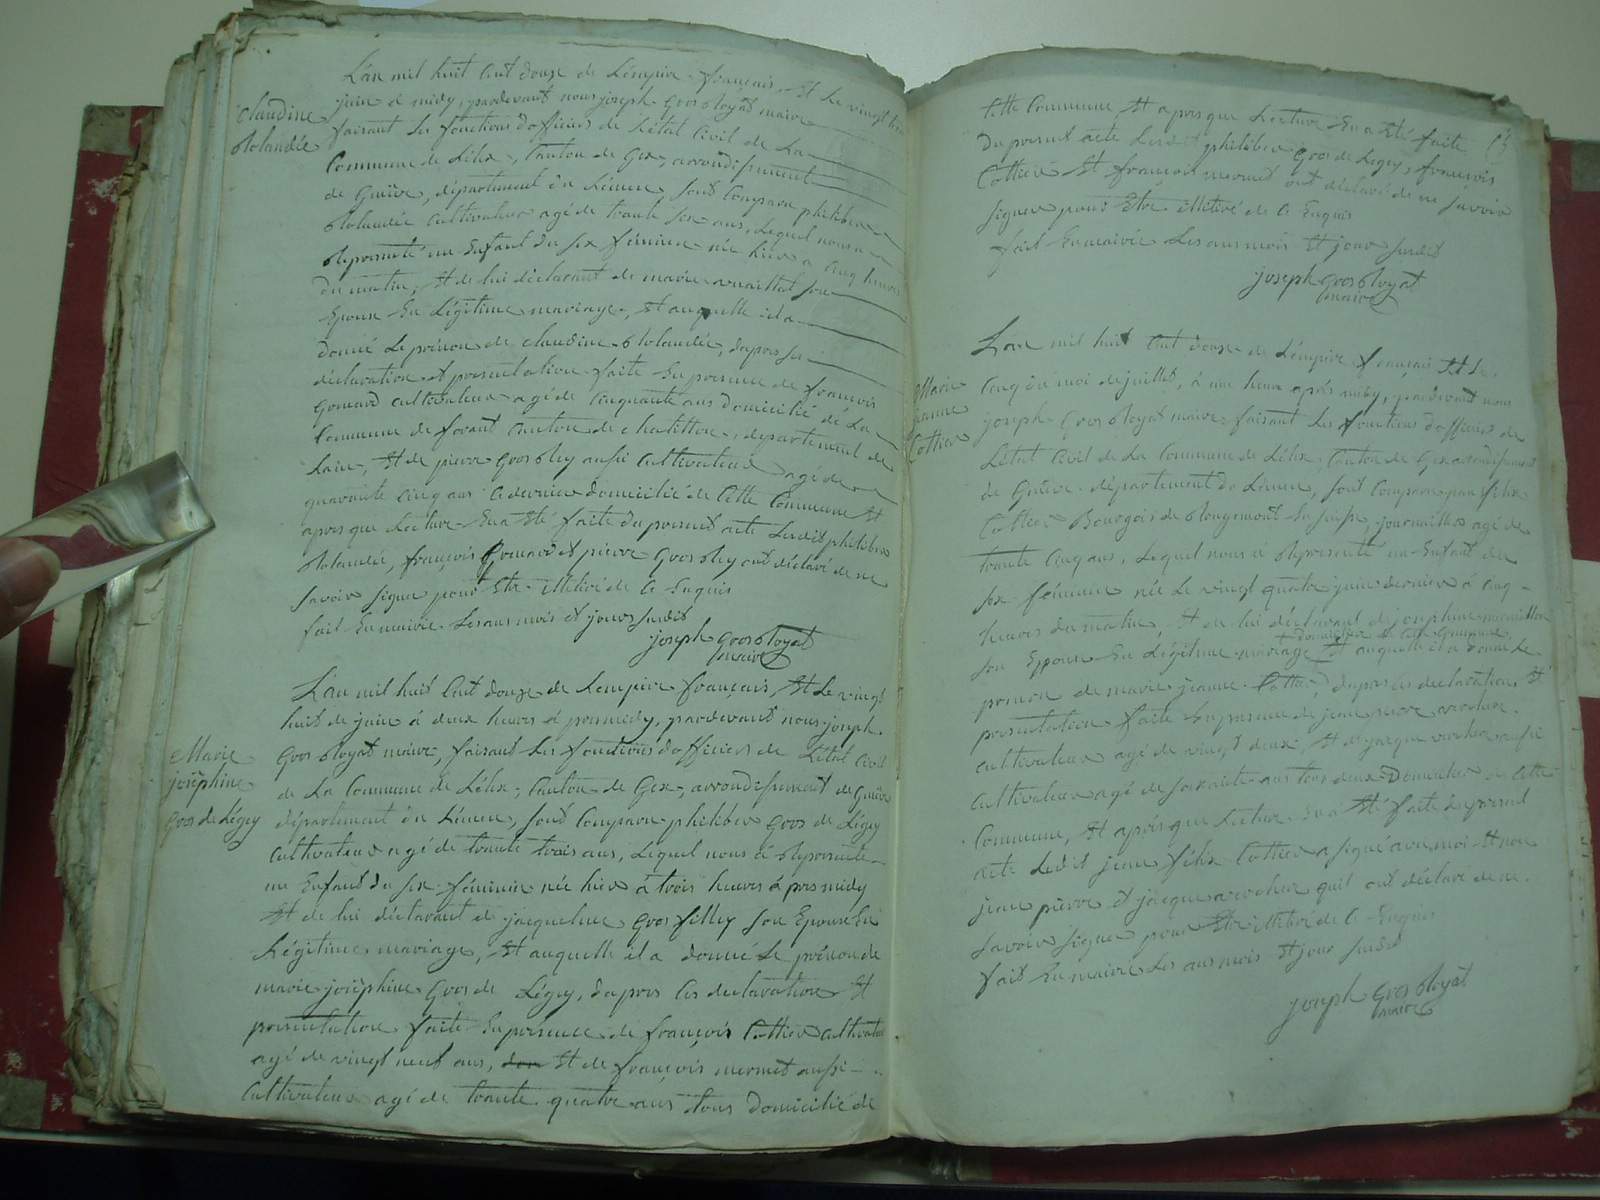 L'an mil huit Cent douze de L'empire français, Et Le vingt
juin à midy, pardevant nous joseph Grosbloyat maire
faisant Les fonctions d'officier de L'état Civil de La
Commune de Lélix, Canton de Gex, arrondissement
de Genève, département du Léman, sont Comparu philibér
blolandée Cultivateur agé de trante six ans, Lequel nous a
blepresenté un Enfant du sex féminin née hier a Cinq heures
du matin, Et de lui déclarant de marie son
Epouse En Légitime mariage, Et auquelle il a
donné Le prénon de Claudine blolandée, dapres ses
déclaration Et presentation faite En presence de françois
gouard cultivateur agé de Cinquante ans domicilié dé La
Commune de forant Canton de chatillon, département de
Lain, Et de pierre Grosbley aussi Cultivateur agé de
quarante Cinq ans Ce dernier domicilié de Cette Commune Et
apres que Lecture En a Eté faite du present acte Lesdit philibér
blolandée, françois gouard Et pierre Grosbley ont déclaré de ne
savoir signer pour Etre illetiré de Ce Enquis
fait En mairie Les ans mois et jours susdit
joseph Grosbloyat
maire
Claudine
blolandée
L'an mil huit Cent douze de Lempire français, Et Le vingt
huit de juin à deux heures à presmidy, pardevant nous joseph
Grosbloyat maire, faisant Les fonctions d'officier de L'état Civil
de La Commune de Lélix, Canton de Gex, arrondissement de Genève
département du Léman, sont Comparu philibér Gros de Légey
Cultivateur agé de trante trois ans, Lequel nous à blepresenté
un Enfant du sex féminin née hier à trois heures à pres midy
Et de lui déclarant Et jacqueline Grosfilley son Epouse En
Légitime mariage, Et auquelle il a donné Le prénon de
marie joséphine Gros de Légey, dapres Ces declaration Et
presentation faite En presence de françois Cottier Cultivateur
agé de vingt neuf ans, Et de françois mermet aussi
Cultivateur agé de trante quatre ans tous domicilié de
Marie
joséphine
Gros de Légey
Cette Commune, Et apres que Lecture En a Eté faite
Du present acte Lesdit philibér Gros de Légey, françois
Cottier Et françois mermet ont déclaré de ne savoir
signer pour Etre illetiré de Ce Enquis
fait En mairie Les ans mois Et jour susdit
joseph Grosbloyat
maire
Lan mil huit Cent douze de L'empire français Et Le
Cinq du moi de juillet, à une heure après midy, pardevant nous
joseph Grosbloyat maire faisant Les fonctions d'officier de
L'état Civil de La Commune de Lélix, Canton de Gex arrondissement
de Genève département du Léman, sont Comparu félix
Cottier Bourgois de blougemont En suisse, journallier agé de
trante Cinq ans, Lequel nous à blepresenté un Enfant du
sex féminin née Le vingt quatre juin dernier à Cinq
heures du matin, Et de lui déclarant Et joséphine
domicilier de Cette Commune
son Epouse En Légitime mariage Et auquelle il a donné Le
prenon de marie jeanne Cottier, dapres Ces declarations Et
presentation faite En presence de jean pierre
cultivateur agé de vingt deux Et de jacque aussi
Cultivateur agé de soixante ans tous deux Domicilier de Cette
Commune, Et aprés que Lecture En a Eté faite du present
acte Ledit jean félix Cottier a signé avec moi Et non
jean pierre Et jacque quil ont déclaré de ne
savoir signer pour Etre illetiré de Ce Enquis
fait En mairie Les ans mois Et jour susdit
joseph Grosbloyat
maire
Marie
jeanne
Cottier